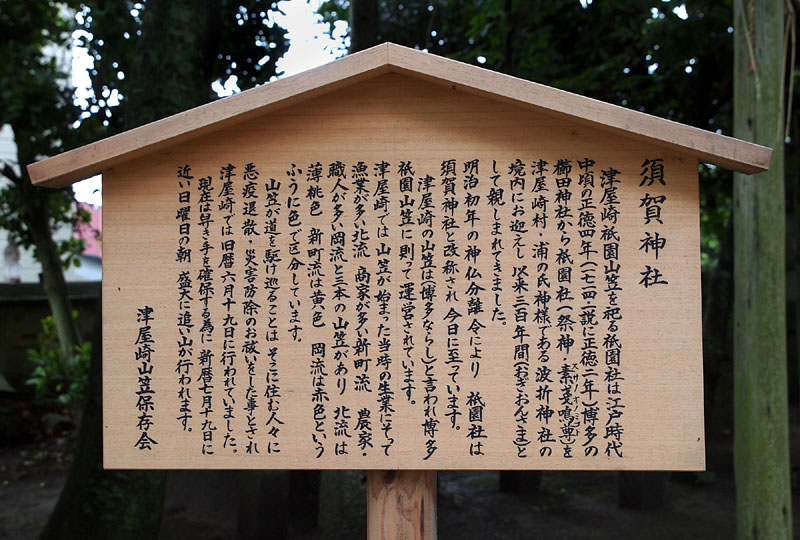 須賀神社
津屋崎祇園山笠を祀る祇園社は江戸時代
中頃の正徳四年(一七一四)(一説に正徳二年)博多の
櫛田神社から祇園社(祭神・素戔嗚尊)を
津屋崎村・浦の氏神様である波折神社の
境内にお迎えし 以来三百年間(おぎおんさま)と
して親しまれてきました。
明治初年の神仏分離令により 祇園社は
須賀神社と改称され 今日に至っています。
津屋崎の山笠は(博多ならし)と言われ博多
祇園山笠に則って運営されています。
津屋崎では 山笠が始まった当時の生業にそって
漁業が多い北流 商家が多い新町流 農家・
職人が多い岡流と三本の山笠があり 北流は
薄桃色 新町流は黄色 岡流は赤色という
ふうに色で区分しています。
山笠が道を駆け巡ることは そこに住む人々に
悪疫退散・災害防除のお祓いをした事とされ
津屋崎では旧暦六月十九日に行われていました。
現在は早き手を確保する為に 新暦七月十九日に
近い日曜日の朝 盛大に追い山が行われます。
津屋崎山笠保存会